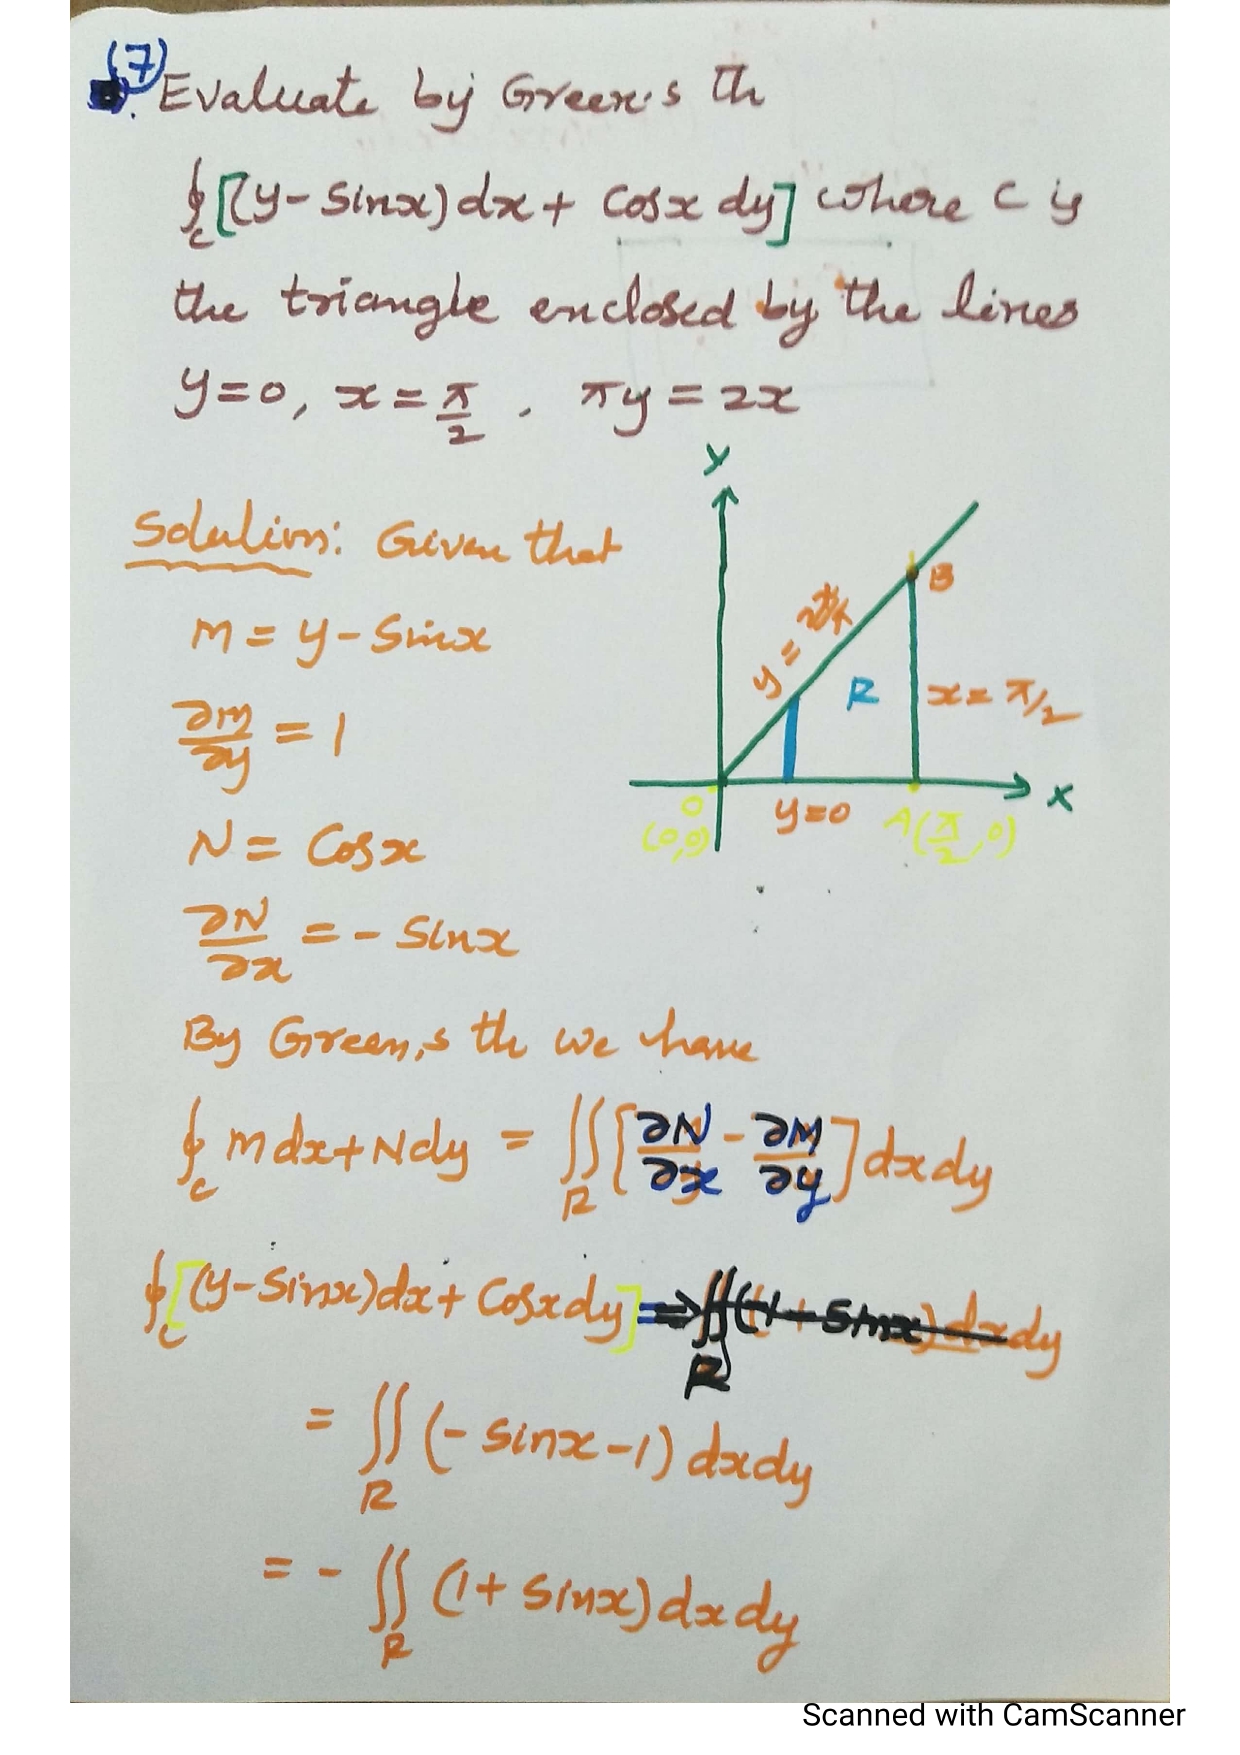 (7) Evaluate by Green's th
∮_C [(y - Sinx) dx + Cosx dy] where C is
the triangle enclosed by the lines
y = 0, x = π/2, πy = 2x
Solution: Given that
M = y - Sinx
∂M/∂y = 1
N = Cosx
∂N/∂x = - Sinx
Y
B
y = 2x/π
R
x = π/2
X
O
(0,0)
y=0
A(π/2, 0)
By Green,s th we have
∮_C M dx + N dy = ∬_R [∂N/∂x - ∂M/∂y] dx dy
∮_C [(y - Sinx) dx + Cosx dy] ⇒ ∬_R dx dy
= ∬_R (- Sinx - 1) dx dy
= - ∬_R (1 + Sinx) dx dy
Scanned with CamScanner